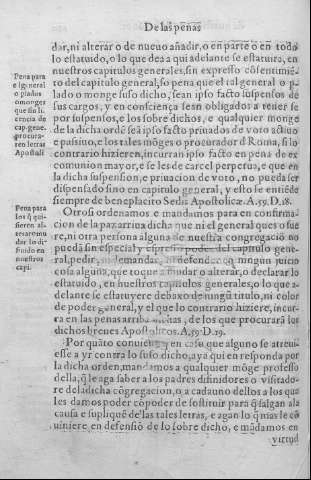 De las pēnas
dar, ni alterar o de nueuo añadir, o en parte o en todo
lo estatuido, o lo que dea a qui adelante se estatuira, en
nuestros capitulos generales, sin expresso cōsentimiē-
to del capitulo general, so pena que el tal general o p̄-
lado o monge suso dicho, sean ipso facto suspensos de
sus cargos, y en consciença sean obligados a tener se
por suspensos, e los sobre dichos, e qualquier monge
de la dicha ordē seā ipso facto priuados de voto actiuo
e passiuo, e los tales mōges o procurador de Roma, si lo
contrario hizieren, incurran ipso facto en pena de ex
comunion mayor, e se les de carcel perpetua, e que en
la dicha suspension, e priuacion de voto, no pueda ser
dispensado sino en capitulo general, y esto se entiēde
siempre de beneplacito Sedis Apostolicæ. A. 59. D. 18.
Pena para
el general
o p̄lados
o monges
que sin li-
cencia de
cap. gene.
procura-
ren letras
Apostoli
Otrosi ordenamos e mandamos para en confirma-
cion de la paz arriba dicha que ni el general ques o fue
re, ni otra persona alguna de nuestra congregacio no
pueda sin especial y expresso poder del capitulo gene-
ral, pedir, ni demandar, ni defender en ningun juicio
cosa alguna, que toque a mudar o alterar, o declarar lo
estatuido, en nuestros capitulos generales, o lo que a-
delante se estatuyere debaxo de ningū titulo, ni color
de poder general, y el que lo contrario hiziere, incur-
ra en las penas arriba dichas, de los que procurarā los
dichos breues Apostolicos. A. 59. D. 19.
Pena para
los q̄ qui-
sieren al-
terar o mu
dar lo di-
finido en
nuestros
capi.
Por quāto conuiene, y en caso, que alguno se atreui-
esse a yr contra lo suso dicho, aya qui en responda por
la dicha orden, mandamos a qualquier mōge professo
della, q̄ le aga saber a los padres difinidores o visitado-
re deladicha cōgregacion, o a cadauno dellos a los qua
les damos poder cōpoder de sostituir para q̄ salgan ala
causa e supliquē de las tales letras, e agan lo q̄ mas le cō
uiniere, en defensiō de lo sobre dicho, e mādamos en
virtud